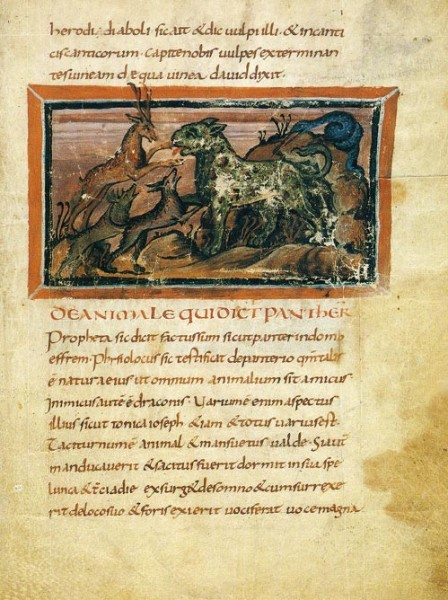 herodi, diaboli sicait & dic vulpi illi, & incanti
ciscanticorum. Capite nobis vulpes exterminan
tes vineam. de qua vinea david dixit.
DE ANIMALE QUI DICIT PANTHER
Propheta sic dicit factus sum sicut panter in domo
effrem. Physiolocus sic testificat de panterio qm talis
e natura eius ut omnium animalium sit amicus
Inimicus aute e draconis. Varium e enim aspectus
illius sicut tonica ioseph & iam & totus varius est.
Taciturnum e animal & mansuetus valde. Si aut
manducaverit & saciatus fuerit dormit in sua spe
lunca & tercia die exsurg& de somno & cum surrexe
rit de loco suo & foris exierit vociferat voce magna.